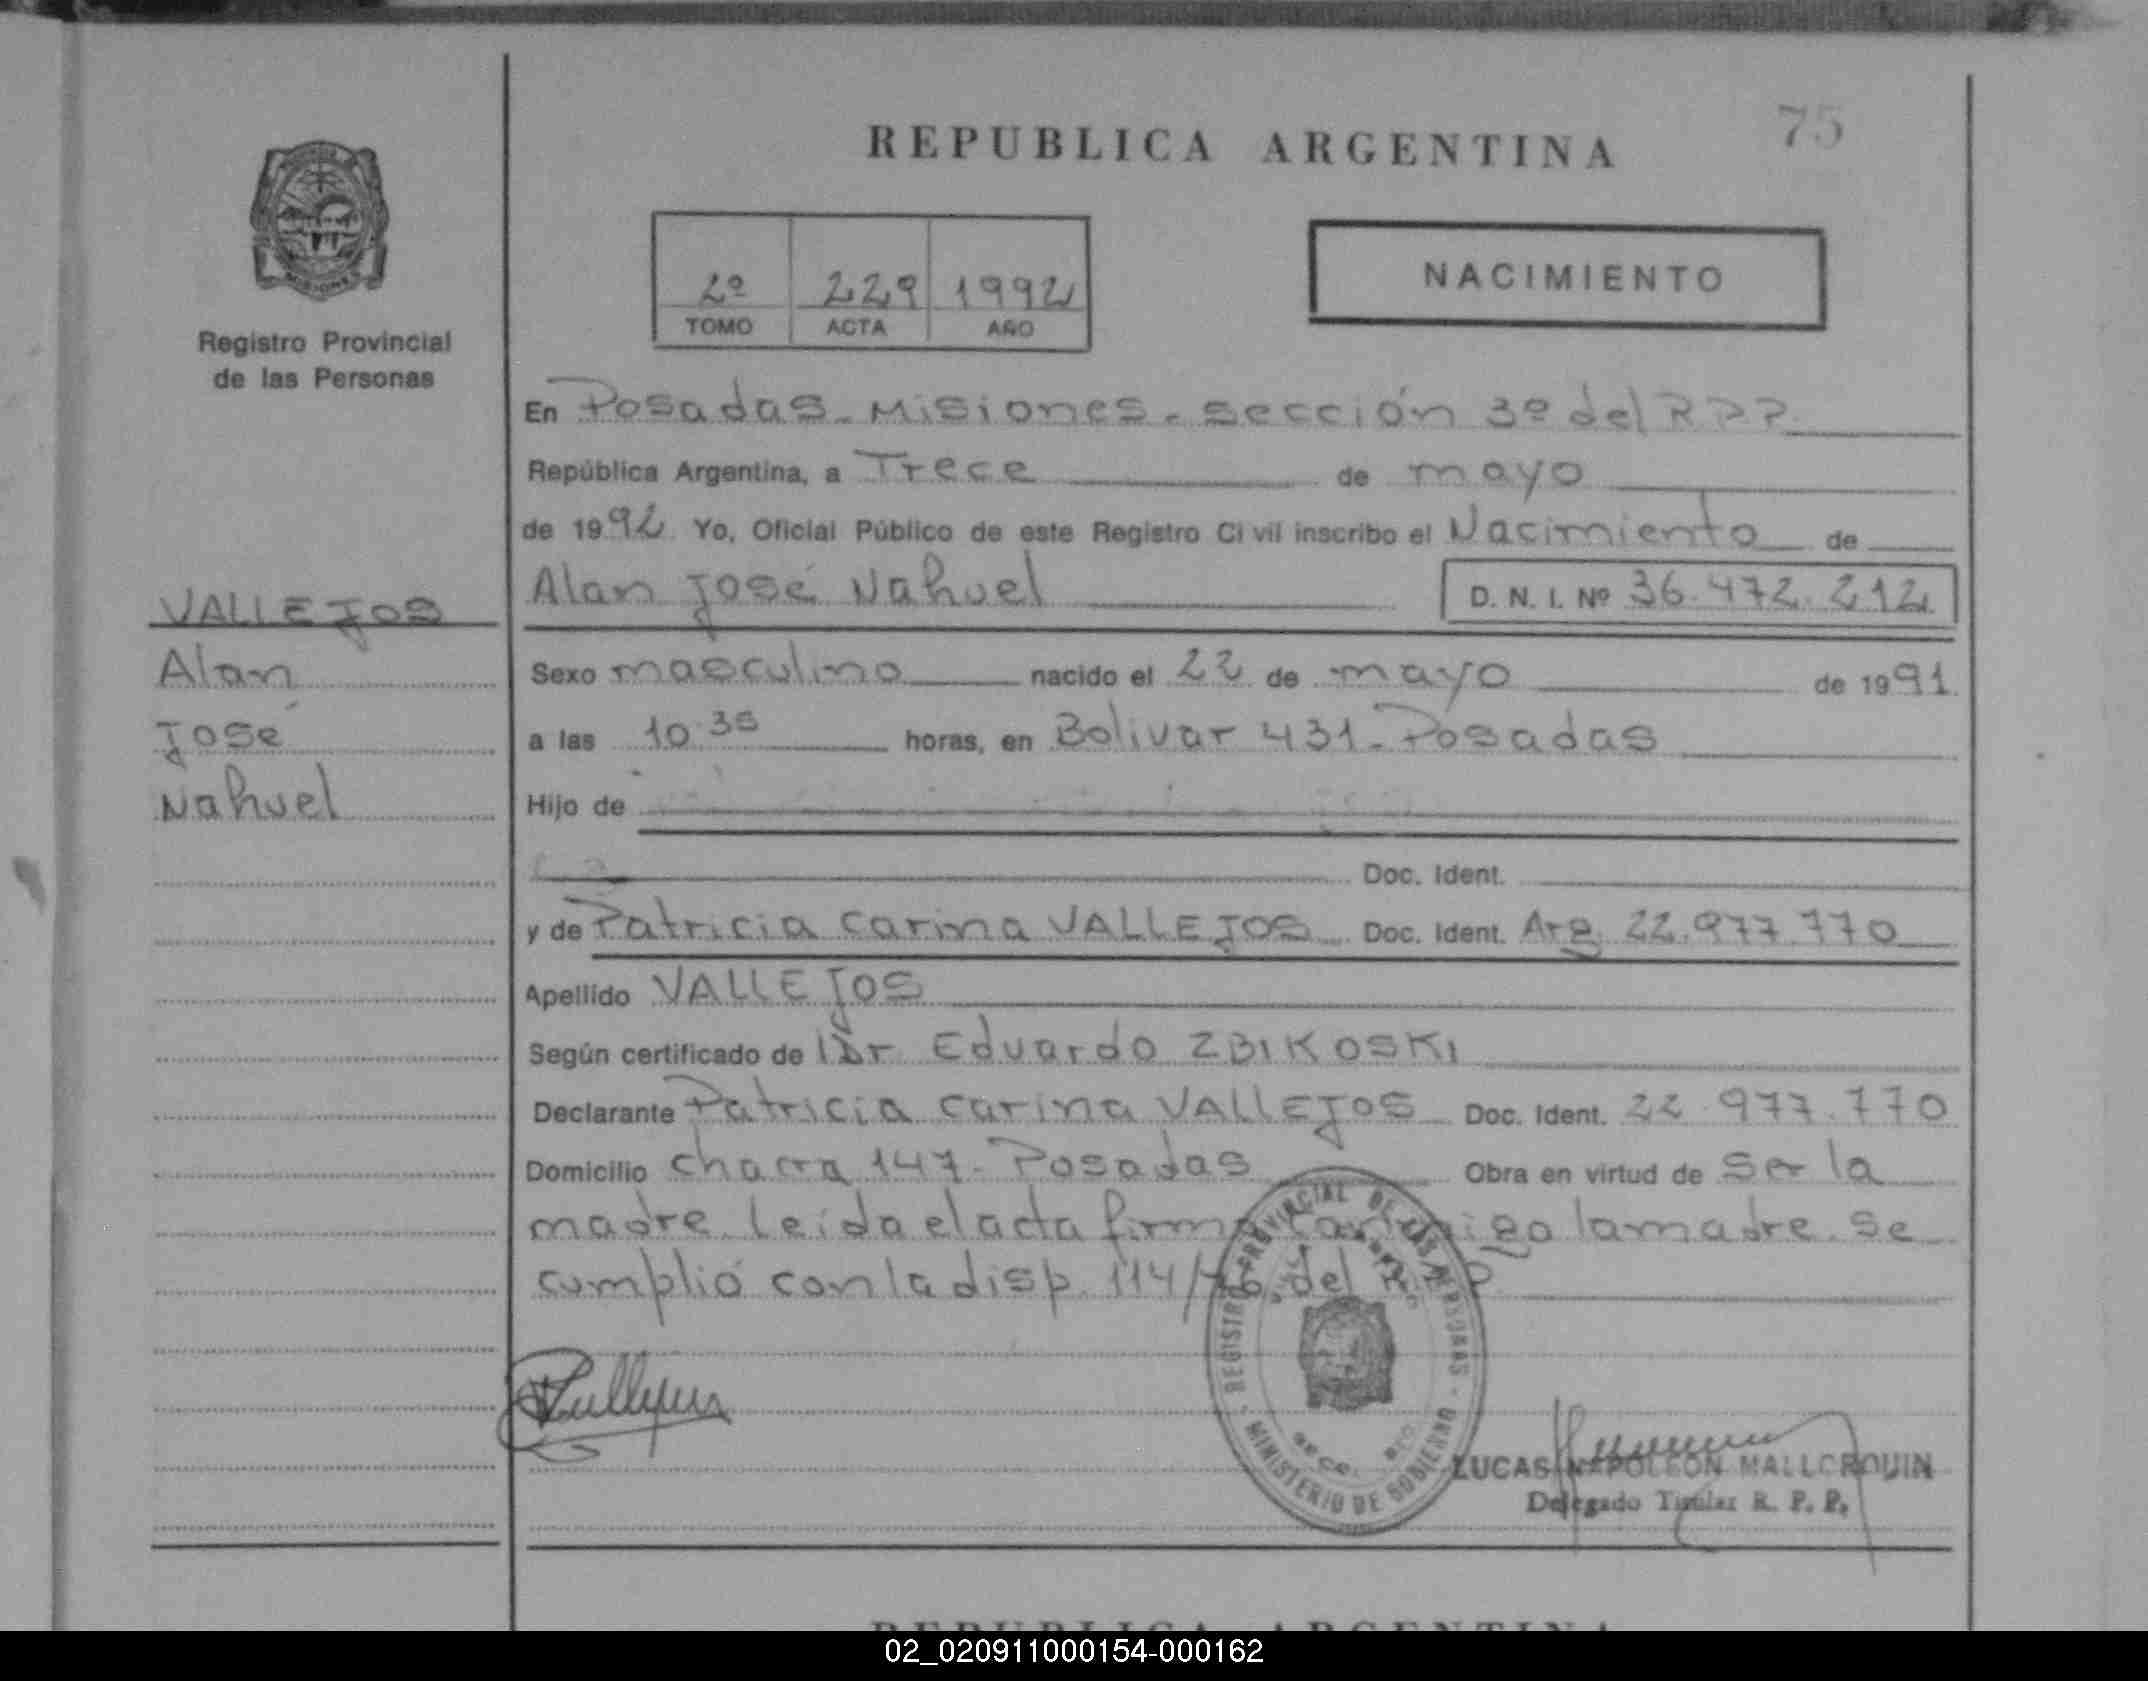 75
REPUBLICA ARGENTINA
NACIMIENTO
2º 229 1992
TOMO ACTA AÑO
Registro Provincial
de las Personas
VALLEJOS
Alan
José
Nahuel
En Posadas - Misiones - sección 3º del RPP.
República Argentina, a Trece de mayo
de 1992 Yo, Oficial Público de este Registro Civil inscribo el Nacimiento de
Alan José Nahuel D. N. I. Nº 36.472.212
Sexo masculino nacido el 22 de mayo de 1991.
a las 10:35 horas, en Bolivar 431 - Posadas
Hijo de
Doc. Ident.
y de Patricia Carina VALLEJOS Doc. Ident. Arg. 22.977.770
Apellido VALLEJOS
Según certificado de Dr Eduardo ZBIKOSKI
Declarante Patricia Carina VALLEJOS Doc. Ident. 22.977.770
Domicilio chacra 147 - Posadas Obra en virtud de ser la
madre. Leída el acta firma conmigo la madre. Se
cumplió con la disp. 114/76 del R.P.P.
REGISTRO PROVINCIAL DE LAS PERSONAS
MINISTERIO DE GOBIERNO
LUCAS NAPOLEON MALLORQUIN
Delegado Titular R. P. P.
REPUBLICA ARGENTINA
02_020911000154-000162